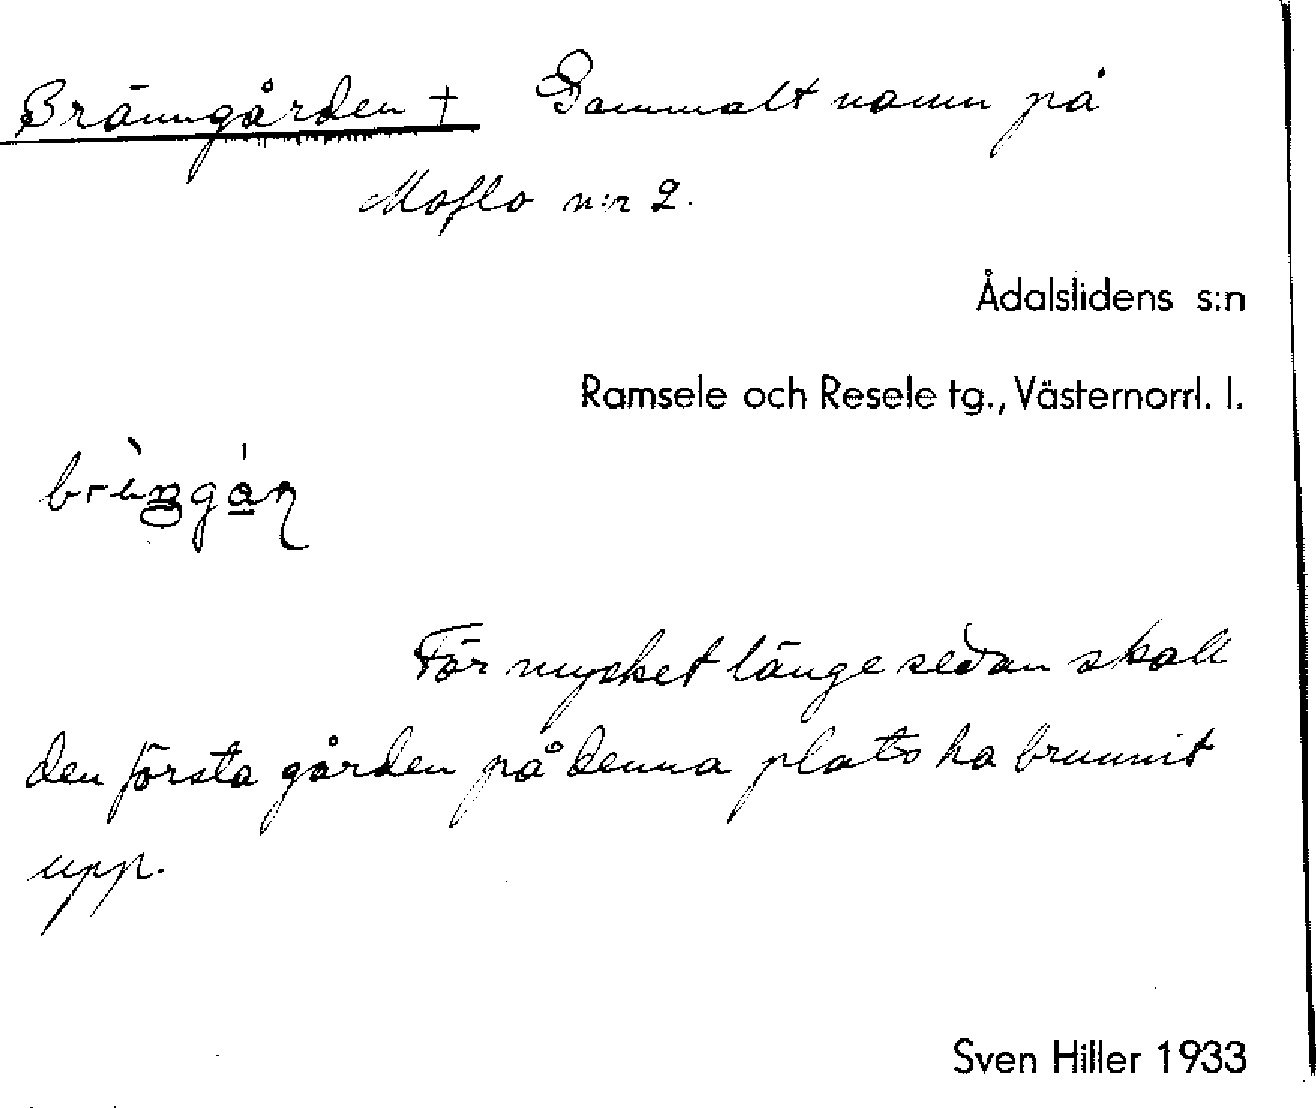 Bränngården † Gammalt namn på
Moflo n:r 2.
Ådalslidens s:n
Ramsele och Resele tg., Västernorrl. l.
För mycket länge sedan skall
den första gården på denna plats ha brunnit
upp.
Sven Hiller 1933